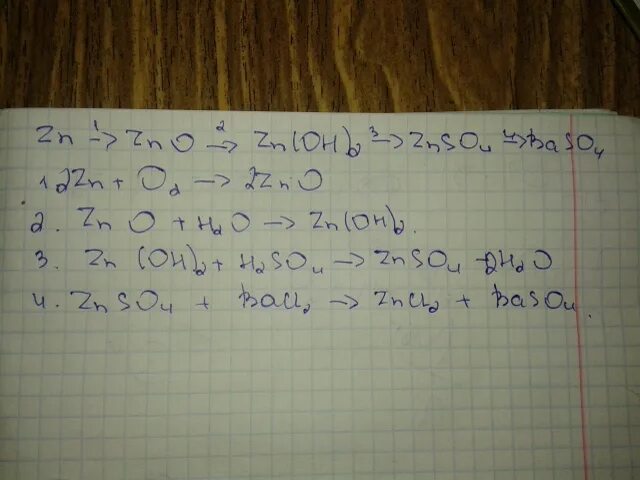 Zn →¹ ZnO →² Zn(OH)₂ →³ ZnSO₄ →⁴ BaSO₄
1. 2Zn + O₂ → 2ZnO
2. ZnO + H₂O → Zn(OH)₂.
3. Zn(OH)₂ + H₂SO₄ → ZnSO₄ + 2H₂O
4. ZnSO₄ + BaCl₂ → ZnCl₂ + BaSO₄.